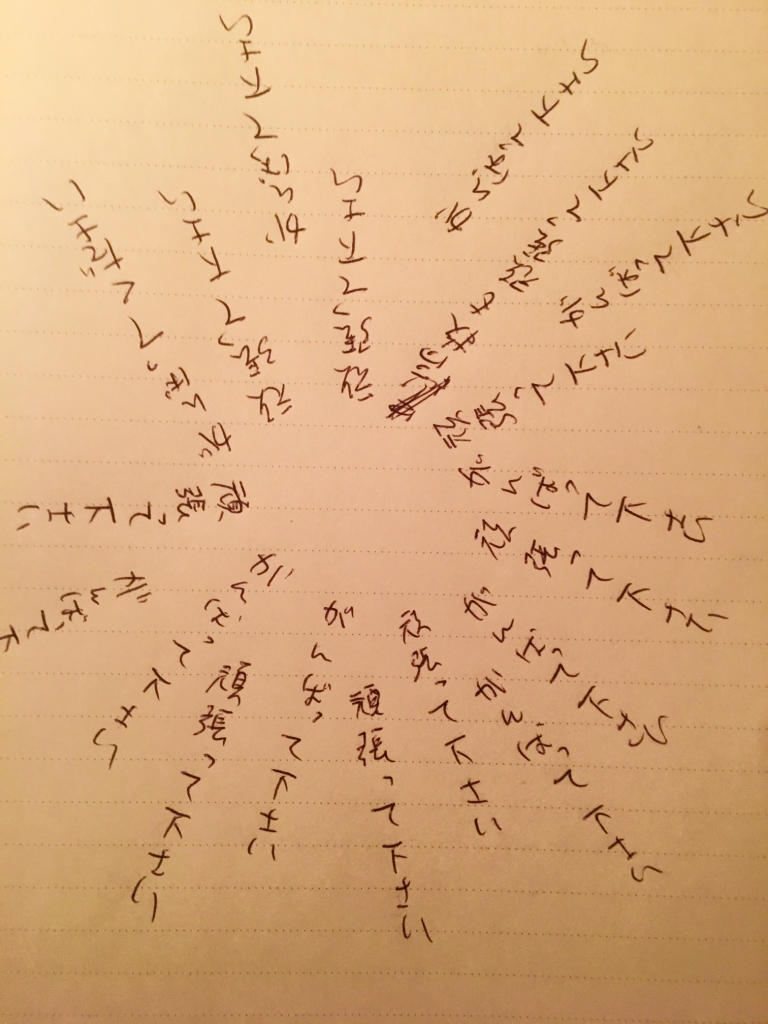 がんばって下さい
頑張って下さい
がんばって下さい
頑張って下さい
がんばって下さい
頑張って下さい
がんばって下さい
がんばって下さい
頑張って下さい
頑張って下さい
がんばって下さい
頑張って下さい
がんばって下さい
がんばって下
頑張って下さい
がんばってください
頑張って下さい
がんばって下さい
頑張って下さい